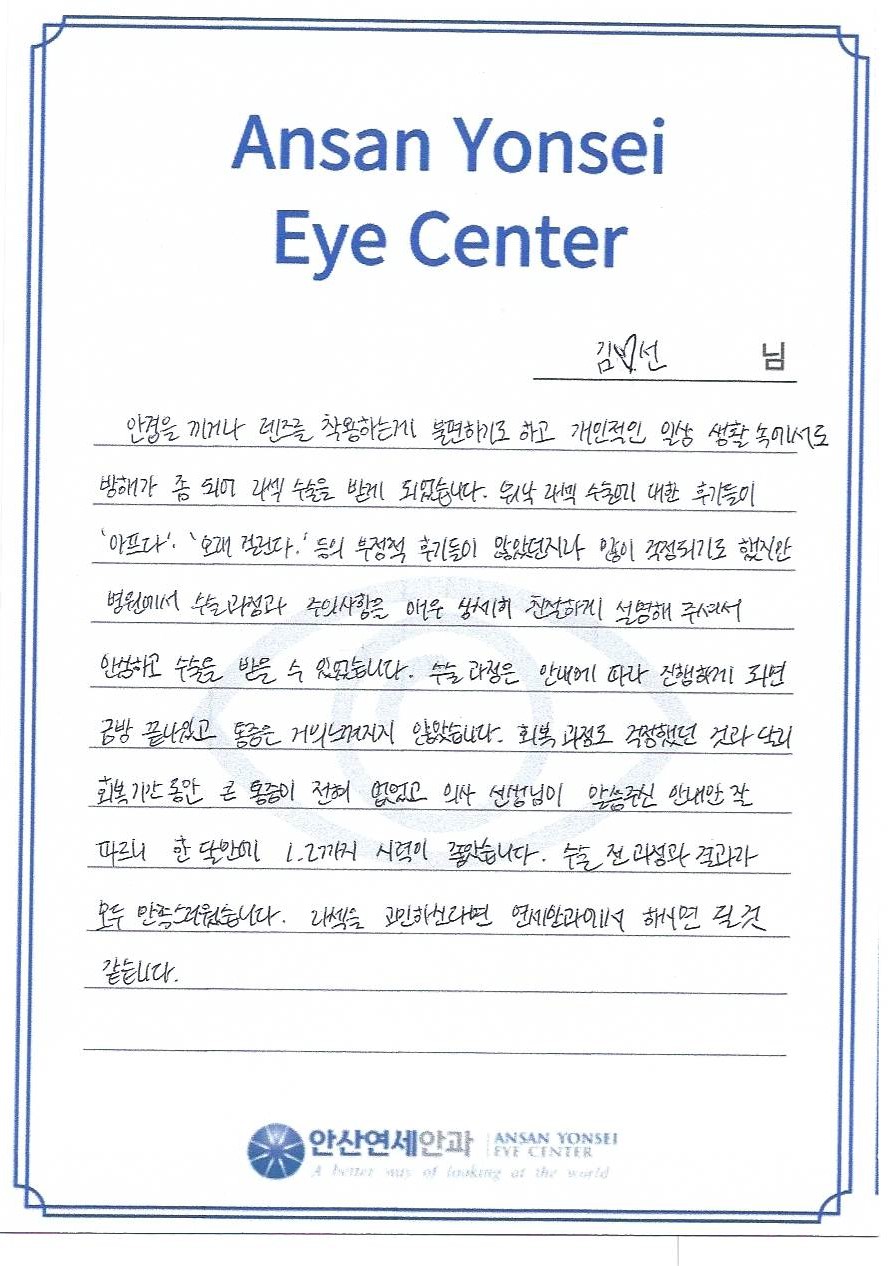 Ansan Yonsei
Eye Center
김♡선 님
안경을 끼거나 렌즈를 착용하는게 불편하기도 하고 개인적인 일상 생활 속에서도
방해가 좀 되어 라섹 수술을 받게 되었습니다. 워낙 라섹 수술에 대한 후기들이
'아프다'. '오래 걸린다.' 등의 부정적 후기들이 많았던지라 많이 걱정되기도 했지만
병원에서 수술 과정과 주의사항을 매우 상세히 친절하게 설명해 주셔서
안심하고 수술을 받을 수 있었습니다. 수술 과정은 안내에 따라 진행하게 되면
금방 끝나있고 통증은 거의 느껴지지 않았습니다. 회복 과정도 걱정했던 것과 달리
회복기간 동안 큰 통증이 전혀 없었고 의사 선생님이 말씀주신 안내만 잘
따르니 한 달만에 1.2까지 시력이 좋았습니다. 수술 전 과정과 결과가
모두 만족스러웠습니다. 라섹을 고민하신다면 연세안과에서 하시면 될 것
같습니다.
안산연세안과 ANSAN YONSEI
EYE CENTER
A better way of looking at the world